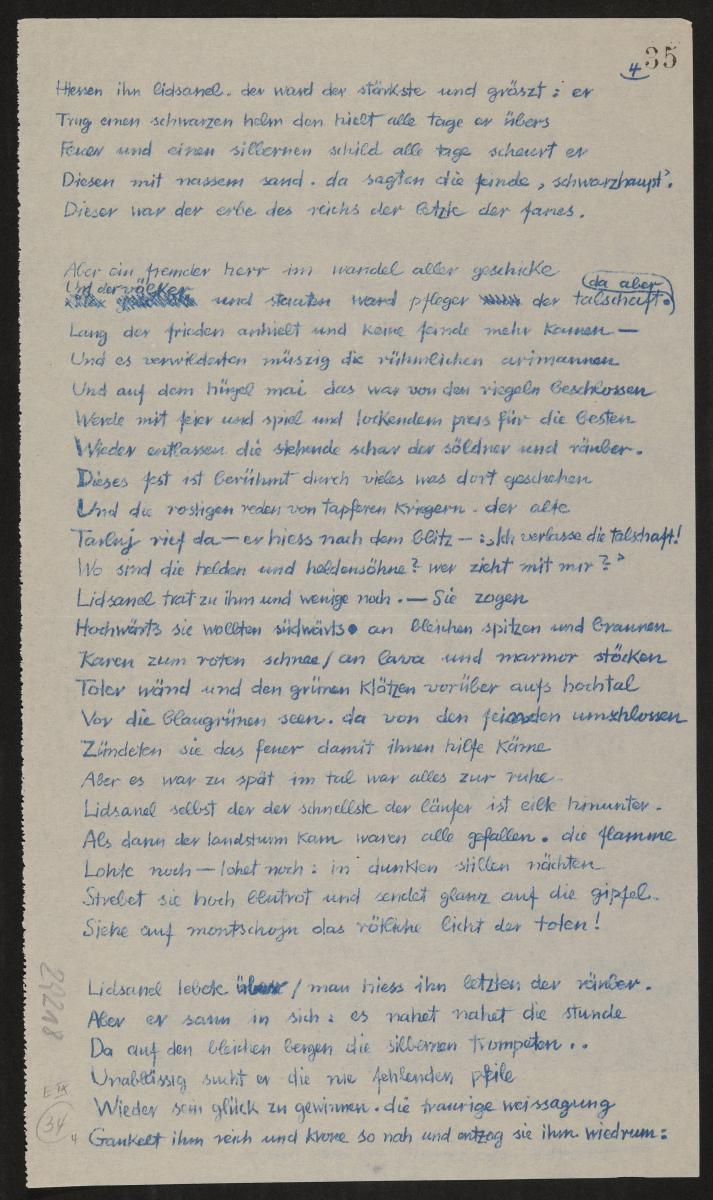 4 35
Hiessen ihn lidsanel. der ward der stärkste und gröszt: er
Trug einen schwarzen helm den hielt alle tage er übers
Feuer und einen silbernen schild alle tage scheuert er
Diesen mit nassem sand. da sagten die feinde ‚schwarzhaupt'.
Dieser war der erbe des reichs der letzte der fanes.
Aber ein fremder herr im wandel aller geschicke
Und der völker und staaten ward pfleger der talschaft. da aber
Lang der frieden anhielt und keine feinde mehr kamen —
Und es verwilderten müszig die rühmlichen arimannen
Und auf dem hügel mai das war von den riegeln beschlossen
Werde mit feier und spiel und lockendem preis für die besten
Wieder entlassen die stehende schar der söldner und räuber.
Dieses fest ist berühmt durch vieles was dort geschehen
Und die rostigen reden von tapferen kriegern. der alte
Tarluj rief da — er hiess nach dem blitz —: ‚Ich verlasse die talschaft!
Wo sind die helden und heldensöhne? wer zieht mit mir?'
Lidsanel trat zu ihm und wenige noch. — Sie zogen
Hochwärts sie wollten südwärts. an bleichen spitzen und braunen
Karen zum roten schnee/ an lava und marmor stöcken
Toter wänd und den grünen klötzen vorüber aufs hochtal
Vor die blaugrünen seen. da von den feinden umschlossen
Zündeten sie das feuer damit ihnen hilfe käme
Aber es war zu spät im tal war alles zur ruhe..
Lidsanel selbst der der schnellste der läufer ist eilte hinunter.
Als dann der landsturm kam waren alle gefallen. die flamme
Lohte noch — lohet noch: in dunklen stillen nächten
Strebet sie hoch blutrot und sendet glanz auf die gipfel..
Siehe auf montschojn das rötliche licht der toten!
Lidsanel lebte / man hiess ihn letzten der räuber.
Aber er sann in sich: es nahet nahet die stunde
Da auf den bleichen bergen die silbernen trompeten..
Unablässig sucht er die nie fehlenden pfeile
Wieder sein glück zu gewinnen. die traurige weissagung
Gaukelt ihm reich und krone so nah und entzog sie ihm wiedrum:
E IX
34
4